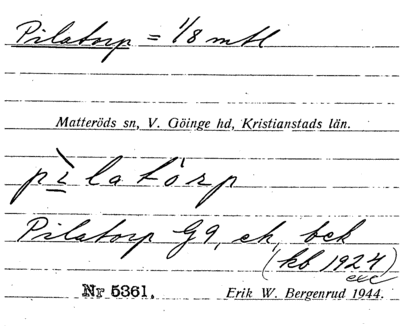 Pilatorp = 1/8 mtl
Matteröds sn, V. Göinge hd, Kristianstads län.
pìlatórp
Pilatorp G9, ek, bek
(kb 1924)
exc
Nr 5361. Erik W. Bergenrud 1944.